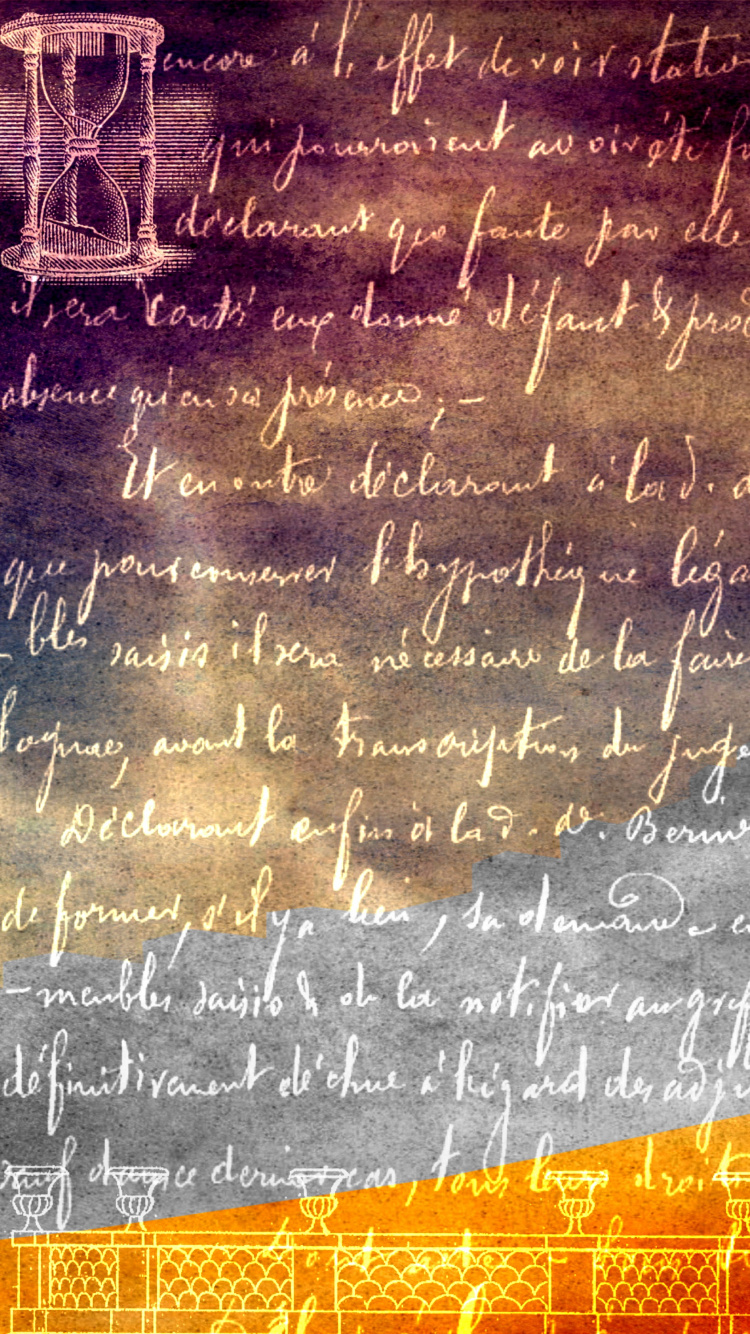 encore à l'effet de voir
qui pourroient avoir été
déclarant que faute par elle
il sera contr'eux donné défaut &
absence qu'en sa présence ; –
Et en outre déclarant à la d.
que pour conserver l'hypothéque
-bles saisis il sera nécessaire de la faire
avant la transcription du
Déclarant enfin à la d. de.
de former, s'il y a lieu, sa demande
-meubles saisis & de la notifier au
définitivement déchue à l'égard des
dans ce dernier cas, tous leurs droits